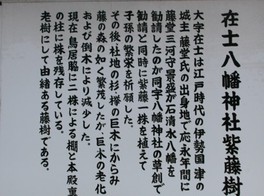 在士八幡神社紫藤樹
大字在士は江戸時代の伊勢国津の
城主藤堂氏の出身地で応永年間に
藤堂三河守景盛が石清水八幡を
勧請したのが同字八幡神社の草創で
勧請と同時に紫藤一株を植えて
子孫の繁栄を祈願した。
その後社地の杉欅の巨木にからみ
藤の森の如く繁ったが巨木の老化
および倒木により減少した。
現在鳥居脇に二株による棚と本殿裏
の柱に株を残している。
老樹にして由緒ある藤樹である。